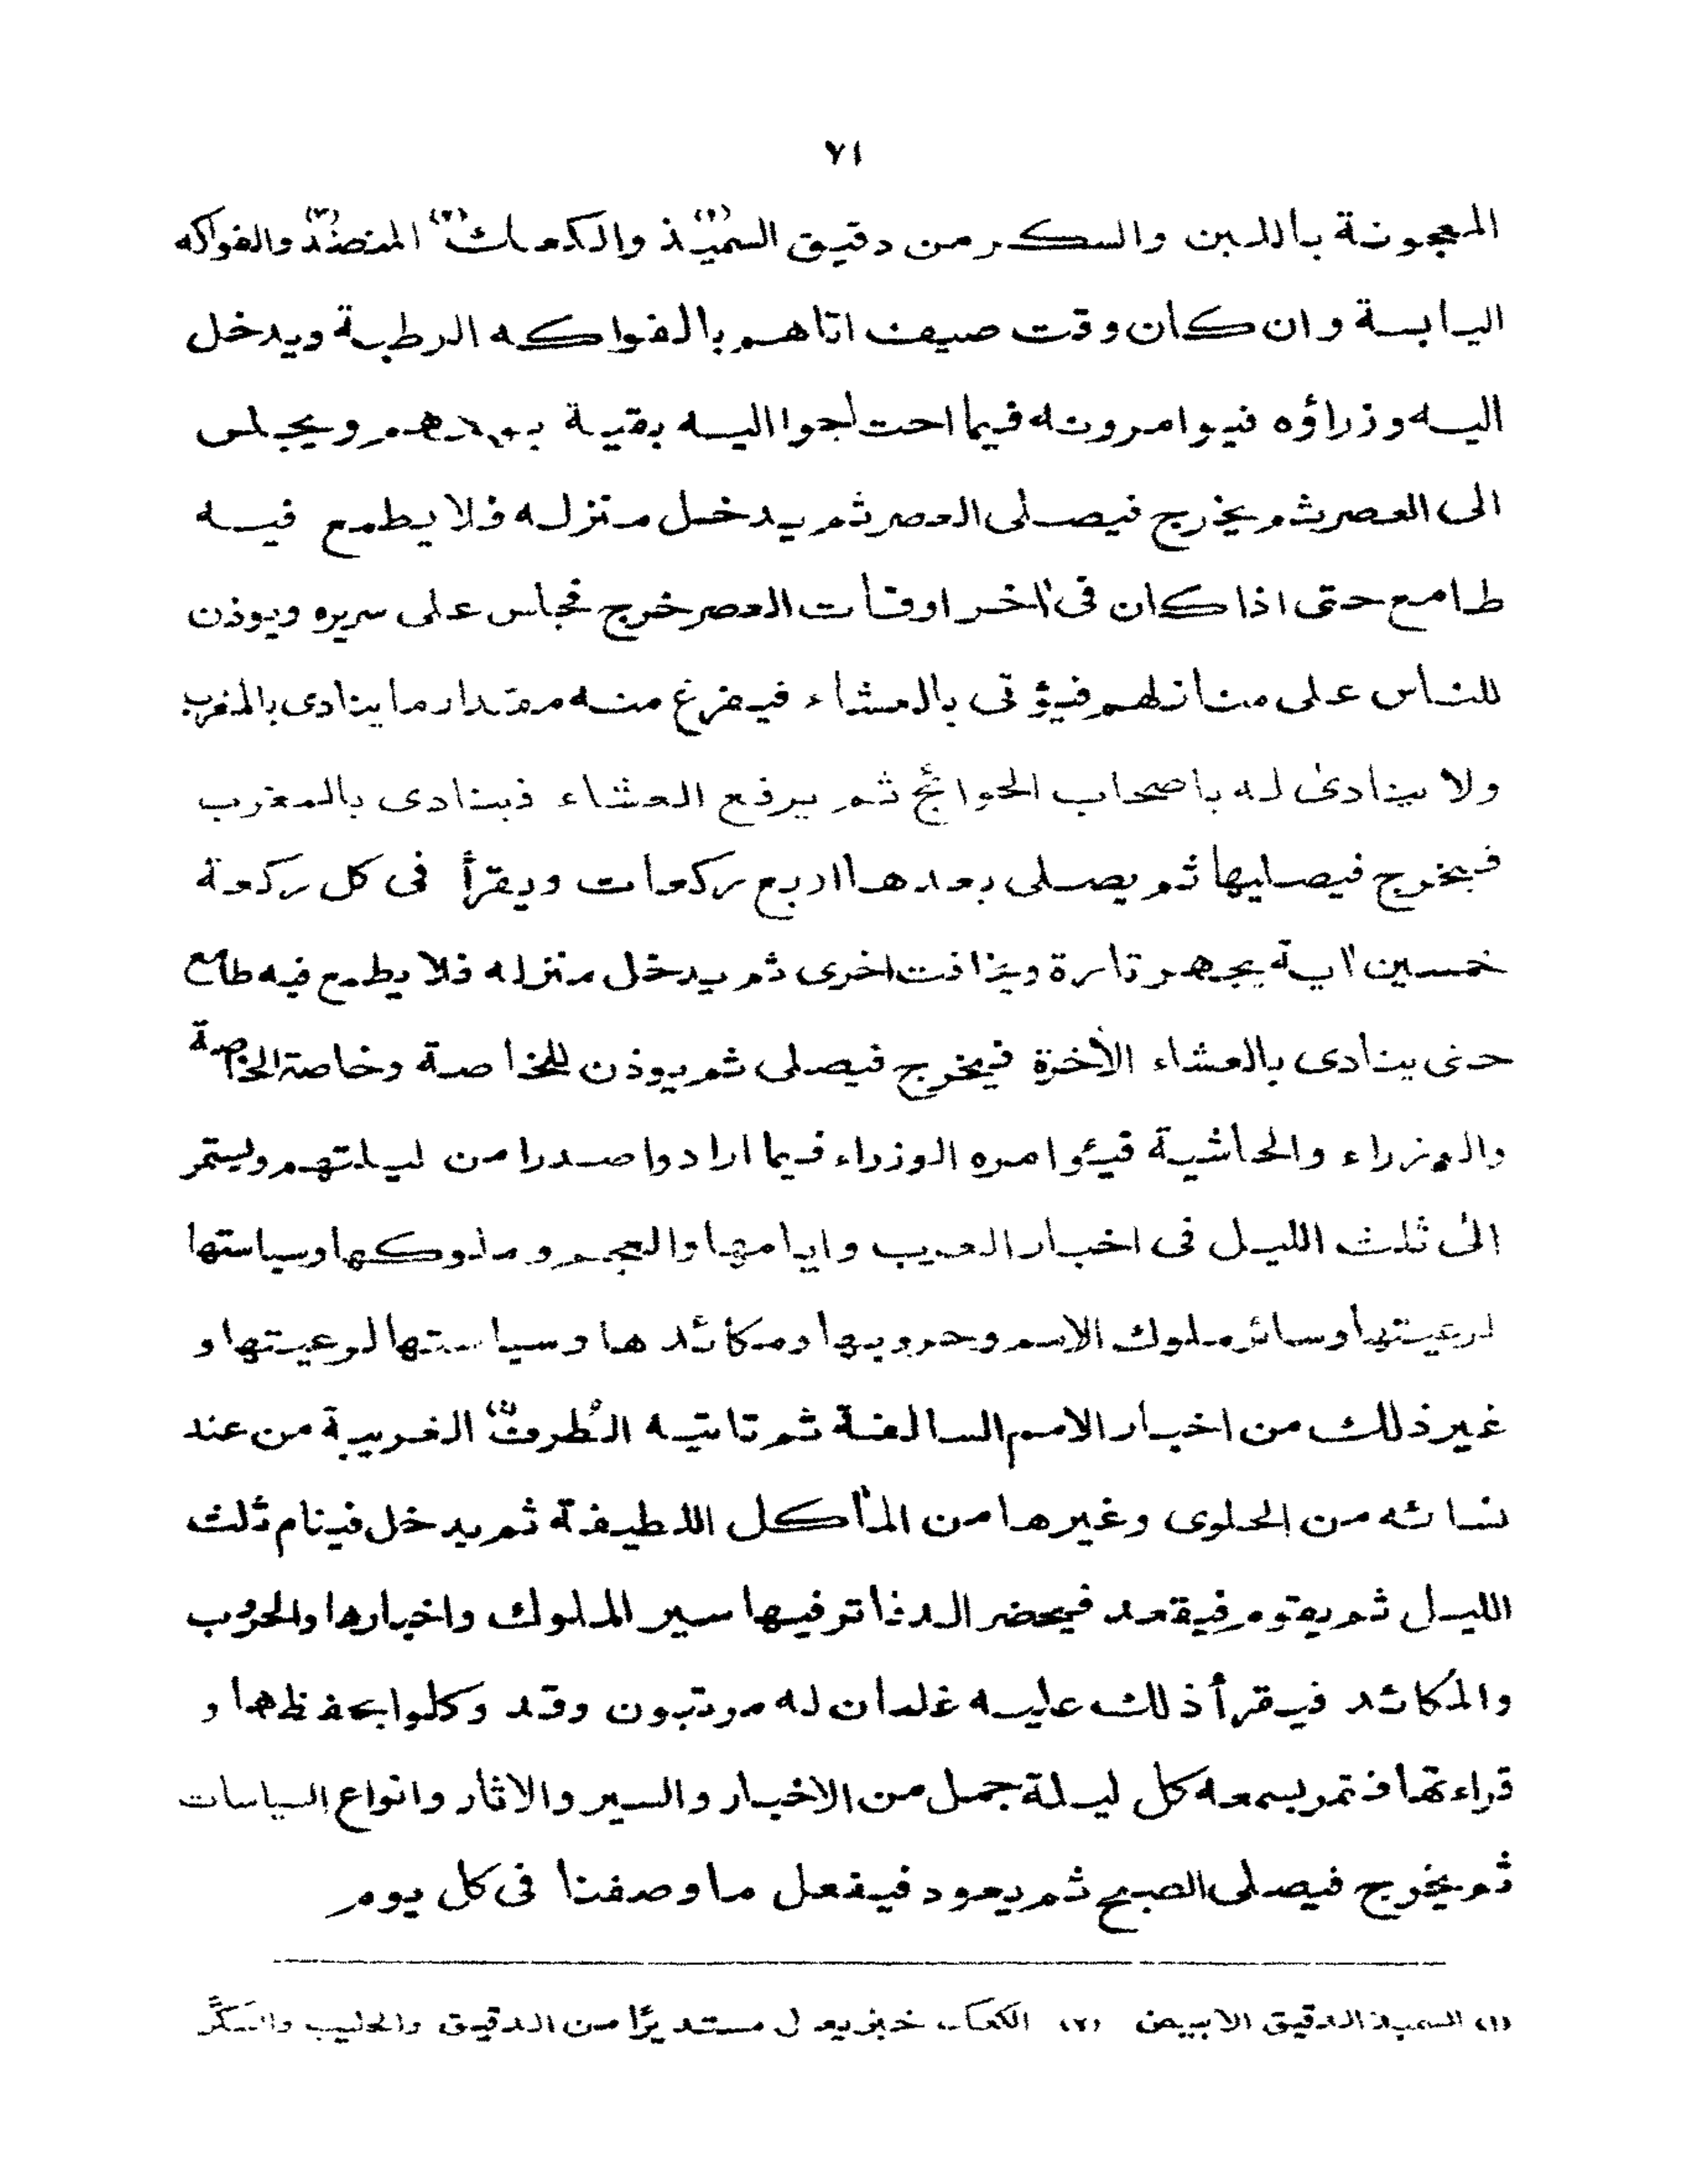 ٧١
المعجونة باللبن والسكر من دقيق السميذ(١) والكعك(٢) المنضد(٣) والفواكه
اليابسة وان كان وقت صيف اتاهم بالفواكه الرطبة ويدخل
اليه وزراؤه فيوامرونه فيما احتاجوا اليه بقية يومهم ويجلس
الى العصر ثم يخرج فيصلى العصر ثم يدخل منزله فلا يطمع فيه
طامع حتى اذا كان فى اٰخر اوقات العصر خرج فجلس على سريره ويوذن
للناس على منازلهم فيؤتى بالعشاء فيفرغ منه مقدار ما ينادى بالمغرب
ولا ينادى له باصحاب الحوائج ثم يرفع العشاء فينادى بالمغرب
فيخرج فيصليها ثم يصلى بعدها اربع ركعات ويقرأ فى كل ركعة
خمسين اٰية يجهر تارة ويخافت اخرى ثم يدخل منزله فلا يطمع فيه طامع
حتى ينادى بالعشاء الأخرة فيخرج فيصلى ثم يوذن للخاصة وخاصة الخاصة
والوزراء والحاشية فيئوامره الوزراء فيما ارادوا صدرا من ليلتهم وليستمر
الى ثلث الليل فى اخبار العرب وايامها والعجم وملوكها وسياستها
لرعيتها وسائر ملوك الامم وحروبها ومكائدها وسياستها لرعيتها و
غير ذلك من اخبار الامم السالفة ثم تاتيه الطرف الغريبة من عند
نسائه من الحلوى وغيرها من المأكل اللطيفة ثم يدخل فينام ثلث
الليل ثم يقوم فيقعد فيحضر الدفاتر فيها سير الملوك واخبارها والحروب
والمكائد فيقرأ ذلك عليه غلمان له مرتبون وقد وكلوا بحفظها و
قراءتها فتمر بسمعه كل ليلة جمل من الاخبار والسير والاثار وانواع السياسات
ثم يخرج فيصلى الصبح ثم يعود فيفعل ما وصفنا فى كل يوم
(١) السميذ الدقيق الابيض (٢) الكعك خبز يعمل مستديرًا من الدقيق والحليب والسكر